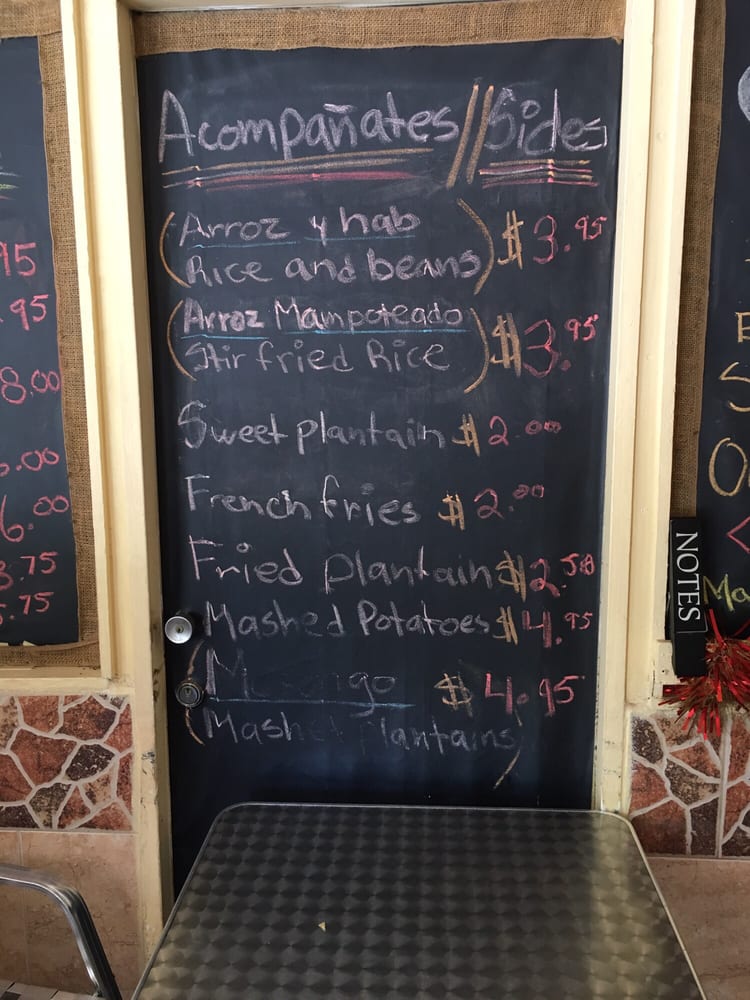 Acompañates // Sides
(Arroz y hab
Rice and beans) $3.95
(Arroz Mampoteado
Stir fried Rice) $3.95
Sweet plantain $2.00
French fries $2.00
Fried plantain $2.50
Mashed Potatoes $4.95
$4.95
Plantains)
95
.95
8.00
.00
6.00
.75
.75
NOTES
Ma